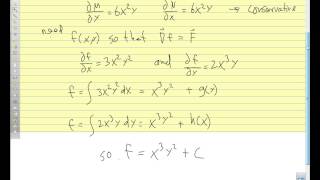 ∂M/∂y = 6x²y ∂N/∂x = 6x²y → conservative
need f(x,y) so that ∇⃗f = F⃗
∂f/∂x = 3x²y² and ∂f/∂y = 2x³y
f = ∫3x²y²dx = x³y² + g(y)
f = ∫2x³y dy = x³y² + h(x)
so f = x³y² + C